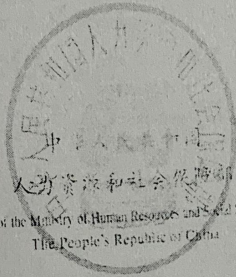 中华人民共和国人力资源和社会保障部
中华人民共和国
人力资源和社会保障部
of the Ministry of Human Resources and Social
The People's Republic of China